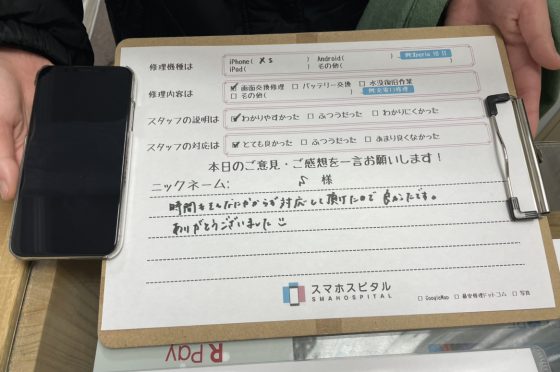 修理機種は
iPhone( XS ) Android( ) 例:Xperia 10 II
iPad( ) その他( )
修理内容は
☑ 画面交換修理 □ バッテリー交換 □ 水没復旧作業
□ その他( ) 例:充電口修理
スタッフの説明は
☑ わかりやすかった □ ふつうだった □ わかりにくかった
スタッフの対応は
☑ とても良かった □ ふつうだった □ あまり良くなかった
本日のご意見・ご感想を一言お願いします!
ニックネーム: S 様
時間もそんなにかからず対応して頂けたので良かったです。
ありがとうございました
スマホスピタル
SMAHOSPITAL
□ GoogleMap □ 最安修理ドットコム □ 写真
R Pay